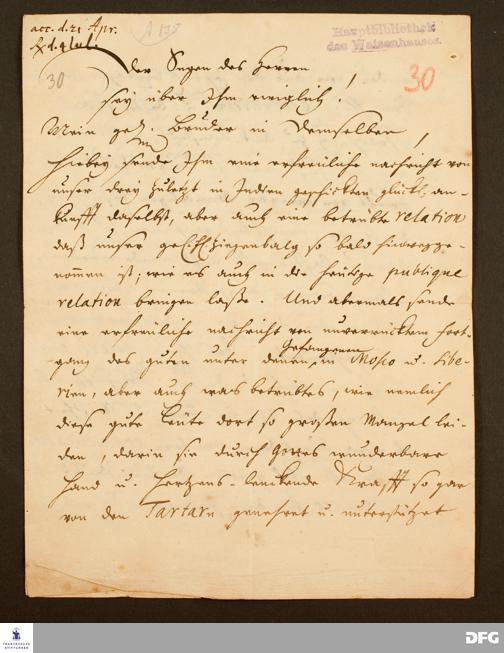 acc. d. 21 Apr.
A 175
Hauptbibliothek
des Waisenhauses
30
30
Der Segen des Herren
sey über Ihm ewiglich!
Mein gel. Bruder in demselben!
Hiebey sende Ihm eine erfreuliche nachricht von
unser drey zuletzt in Indien geschickten glückl. an-
kunfft daselbst, aber auch eine betrübte relation
daß unser gel. H. Ziegenbalg so bald hinwegge-
nommen ist; wie es auch in die heutige publique
relation bringen laße. Und abermals sende
eine erfreuliche nachricht von unverrücktem fort-
gang des guten unter denen Gefangenen in Mosco u. Sibe-
rien, aber auch was betrübtes, wie nemlich
diese gute Leute dort so großen Mangel lei-
den, darin sie durch Gottes wunderbare
Hand u. Hertzens-lenckende Krafft so gar
von den Tartarn genehret u. unterstützet
FRANCKESCHE
STIFTUNGEN
DFG